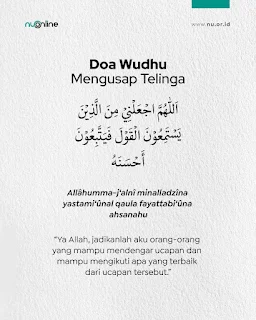 nuonline
www.nu.or.id
Doa Wudhu
Mengusap Telinga
اَللّٰهُمَّ اجْعَلْنِيْ مِنَ الَّذِيْنَ
يَسْتَمِعُوْنَ الْقَوْلَ فَيَتَّبِعُوْنَ
أَحْسَنَهُ
Allâhumma-j'alnî minalladzîna
yastami'ûnal qaula fayattabi'ûna
ahsanahu
“Ya Allah, jadikanlah aku orang-orang
yang mampu mendengar ucapan dan
mampu mengikuti apa yang terbaik
dari ucapan tersebut.”